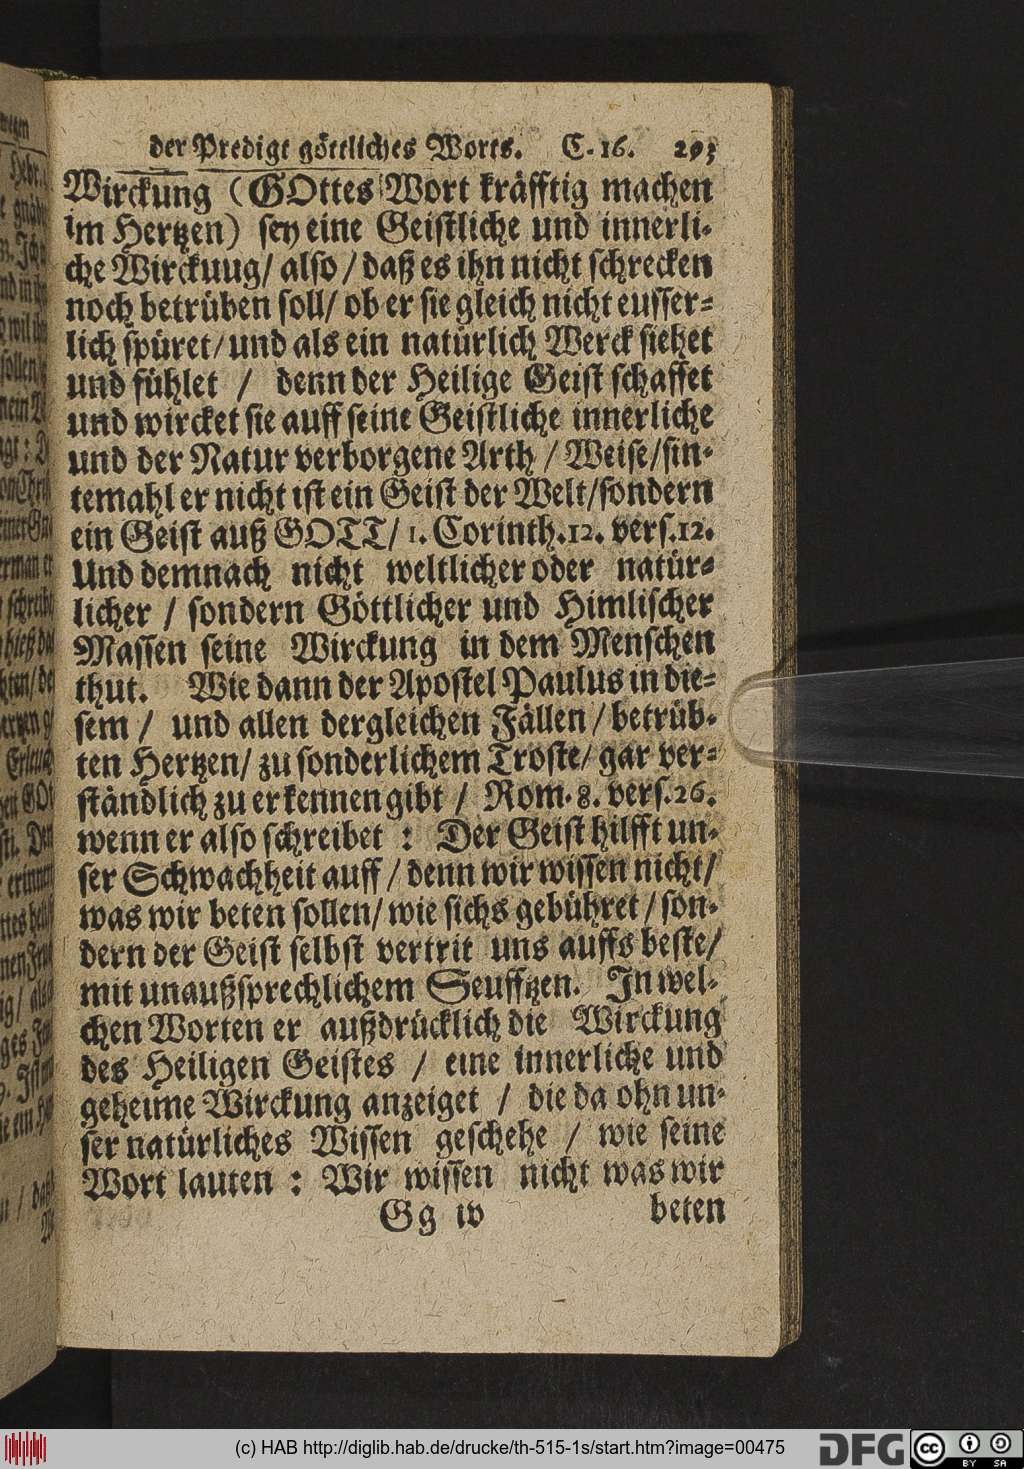 der Predigt göttliches Worts. C. 16. 293
Wirckung (GOttes Wort kräfftig machen
im Hertzen) sey eine Geistliche und innerli-
che Wirckuug/ also / daß es ihn nicht schrecken
noch betrüben soll/ ob er sie gleich nicht eusser-
lich spüret/ und als ein natürlich Werck siehet
und fühlet / denn der Heilige Geist schaffet
und wircket sie auff seine Geistliche innerliche
und der Natur verborgene Arth / Weise/sin-
temahl er nicht ist ein Geist der Welt/sondern
ein Geist auß GOTT/ 1. Corinth.12. vers.12.
Und demnach nicht weltlicher oder natür-
licher / sondern Göttlicher und Himlischer
Massen seine Wirckung in dem Menschen
thut. Wie dann der Apostel Paulus in die-
sem / und allen dergleichen Fällen / betrüb-
ten Hertzen/ zu sonderlichem Troste/ gar ver-
ständlich zu erkennen gibt / Rom. 8. vers.26.
wenn er also schreibet : Der Geist hilfft un-
ser Schwachheit auff / denn wir wissen nicht/
was wir beten sollen/ wie sichs gebühret / son-
dern der Geist selbst vertrit uns auffs beste/
mit unaußsprechlichem Seufftzen. In wel-
chen Worten er außdrücklich die Wirckung
des Heiligen Geistes / eine innerliche und
geheime Wirckung anzeiget / die da ohn un-
ser natürliches Wissen geschehe / wie seine
Wort lauten : Wir wissen nicht was wir
Gg iv beten
(c) HAB http://diglib.hab.de/drucke/th-515-1s/start.htm?image=00475
DFG
cc BY SA